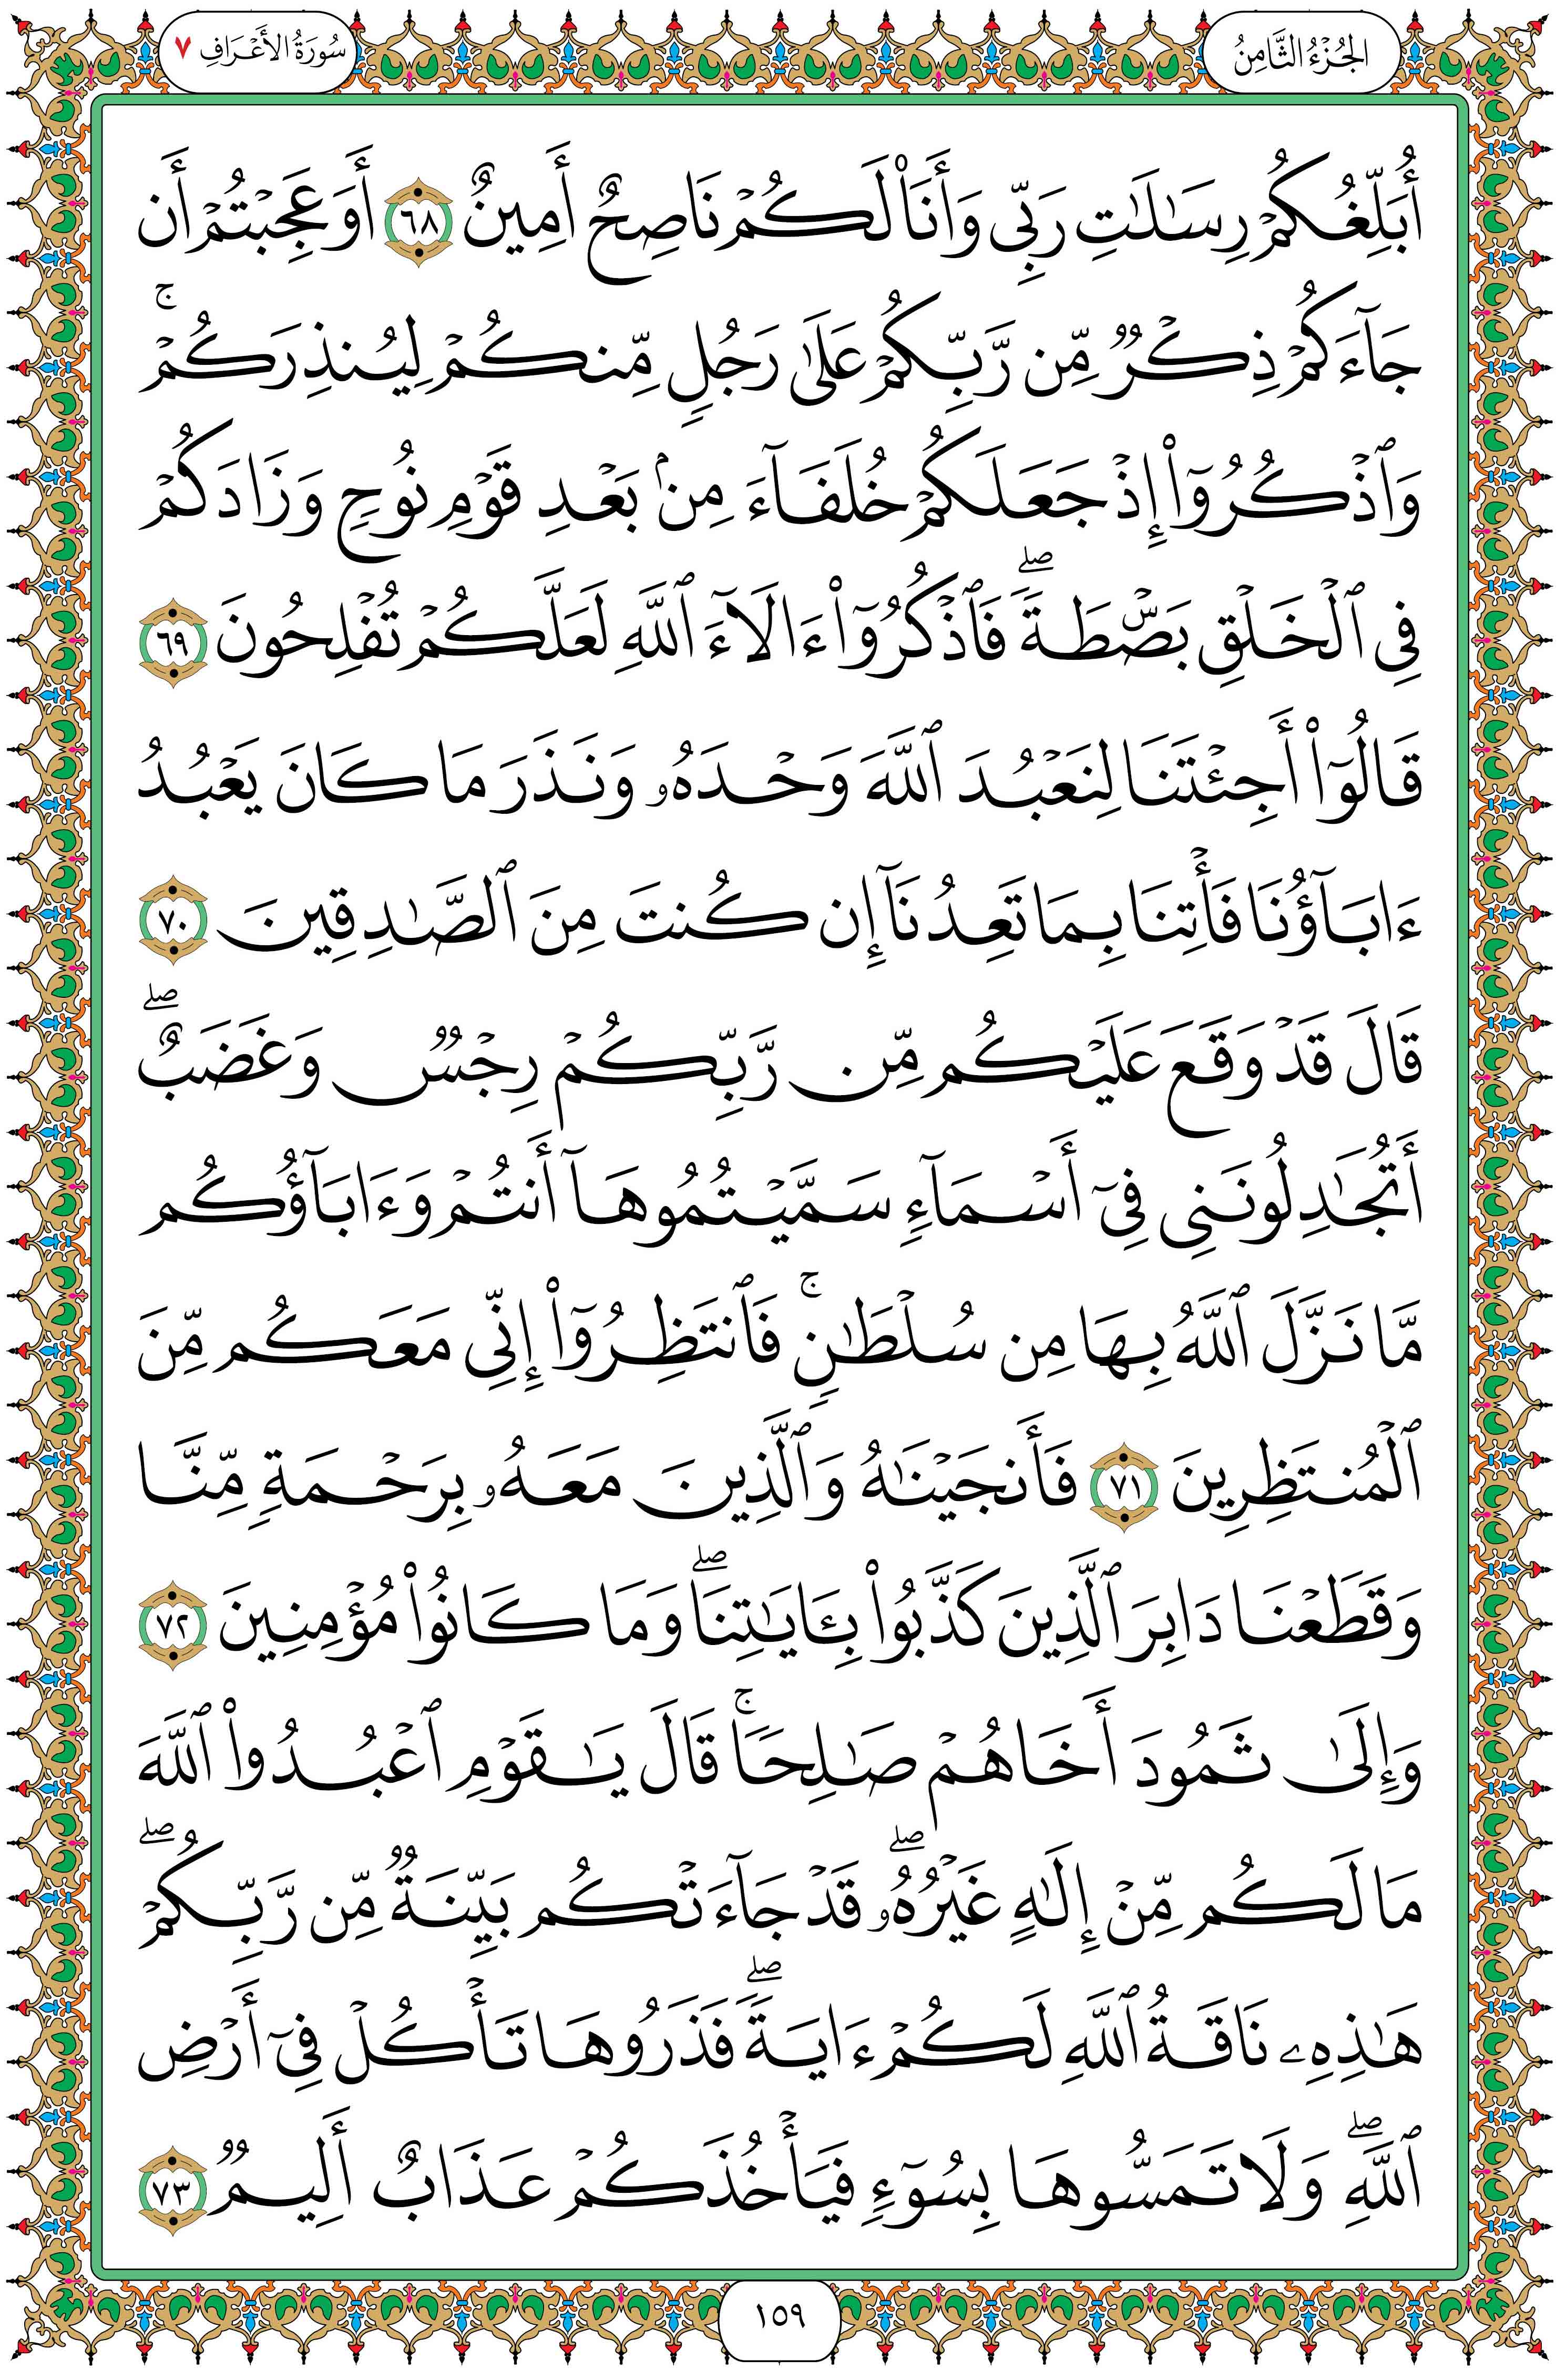 الجُزْءُ الثَّامِنُ
سُورَةُ الأَعْرَافِ ٧
أُبَلِّغُكُمْ رِسَٰلَٰتِ رَبِّي وَأَنَا۠ لَكُمْ نَاصِحٌ أَمِينٌ ٦٨ أَوَعَجِبْتُمْ أَن
جَآءَكُمْ ذِكْرٌ مِّن رَّبِّكُمْ عَلَىٰ رَجُلٍ مِّنكُمْ لِيُنذِرَكُمْ ۚ
وَٱذْكُرُوٓا۟ إِذْ جَعَلَكُمْ خُلَفَآءَ مِنۢ بَعْدِ قَوْمِ نُوحٍ وَزَادَكُمْ
فِى ٱلْخَلْقِ بَصْۜطَةً ۖ فَٱذْكُرُوٓا۟ ءَالَآءَ ٱللَّهِ لَعَلَّكُمْ تُفْلِحُونَ ٦٩
قَالُوٓا۟ أَجِئْتَنَا لِنَعْبُدَ ٱللَّهَ وَحْدَهُۥ وَنَذَرَ مَا كَانَ يَعْبُدُ
ءَابَآؤُنَا فَأْتِنَا بِمَا تَعِدُنَآ إِن كُنتَ مِنَ ٱلصَّٰدِقِينَ ٧٠
قَالَ قَدْ وَقَعَ عَلَيْكُم مِّن رَّبِّكُمْ رِجْسٌ وَغَضَبٌ ۖ
أَتُجَٰدِلُونَنِى فِىٓ أَسْمَآءٍ سَمَّيْتُمُوهَآ أَنتُمْ وَءَابَآؤُكُم
مَّا نَزَّلَ ٱللَّهُ بِهَا مِن سُلْطَٰنٍ ۚ فَٱنتَظِرُوٓا۟ إِنِّى مَعَكُم مِّنَ
ٱلْمُنتَظِرِينَ ٧١ فَأَنجَيْنَٰهُ وَٱلَّذِينَ مَعَهُۥ بِرَحْمَةٍ مِّنَّا
وَقَطَعْنَا دَابِرَ ٱلَّذِينَ كَذَّبُوا۟ بِـَٔايَٰتِنَا ۖ وَمَا كَانُوا۟ مُؤْمِنِينَ ٧٢
وَإِلَىٰ ثَمُودَ أَخَاهُمْ صَٰلِحًا ۚ قَالَ يَٰقَوْمِ ٱعْبُدُوا۟ ٱللَّهَ
مَا لَكُم مِّنْ إِلَٰهٍ غَيْرُهُۥ ۖ قَدْ جَآءَتْكُم بَيِّنَةٌ مِّن رَّبِّكُمْ ۖ
هَٰذِهِۦ نَاقَةُ ٱللَّهِ لَكُمْ ءَايَةً ۖ فَذَرُوهَا تَأْكُلْ فِىٓ أَرْضِ
ٱللَّهِ ۖ وَلَا تَمَسُّوهَا بِسُوٓءٍ فَيَأْخُذَكُمْ عَذَابٌ أَلِيمٌ ٧٣
١٥٩